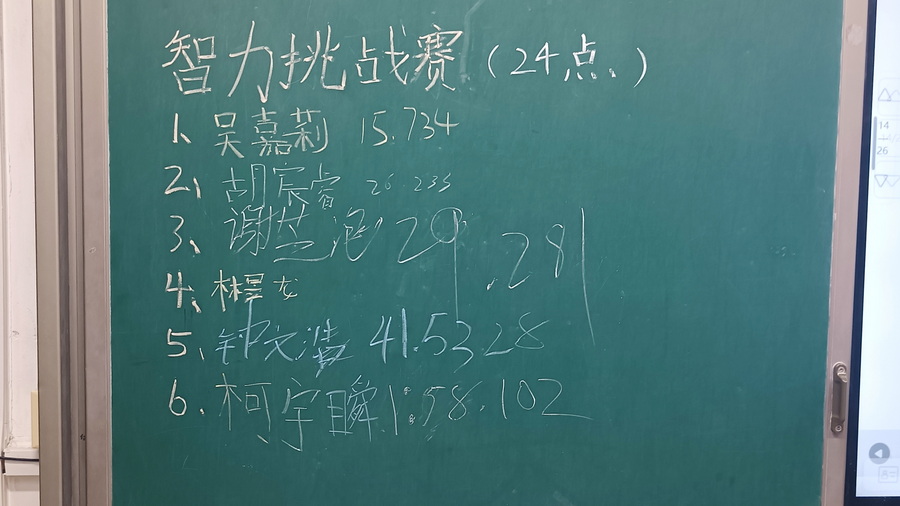 智力挑战赛（24点、）
1、吴嘉莉 15.734
2、胡宸睿 26.235
3、谢芷滟 29.281
4、林昱龙
5、钟文浩 41.5328
6.柯宇瞬 1:58.102
14
26